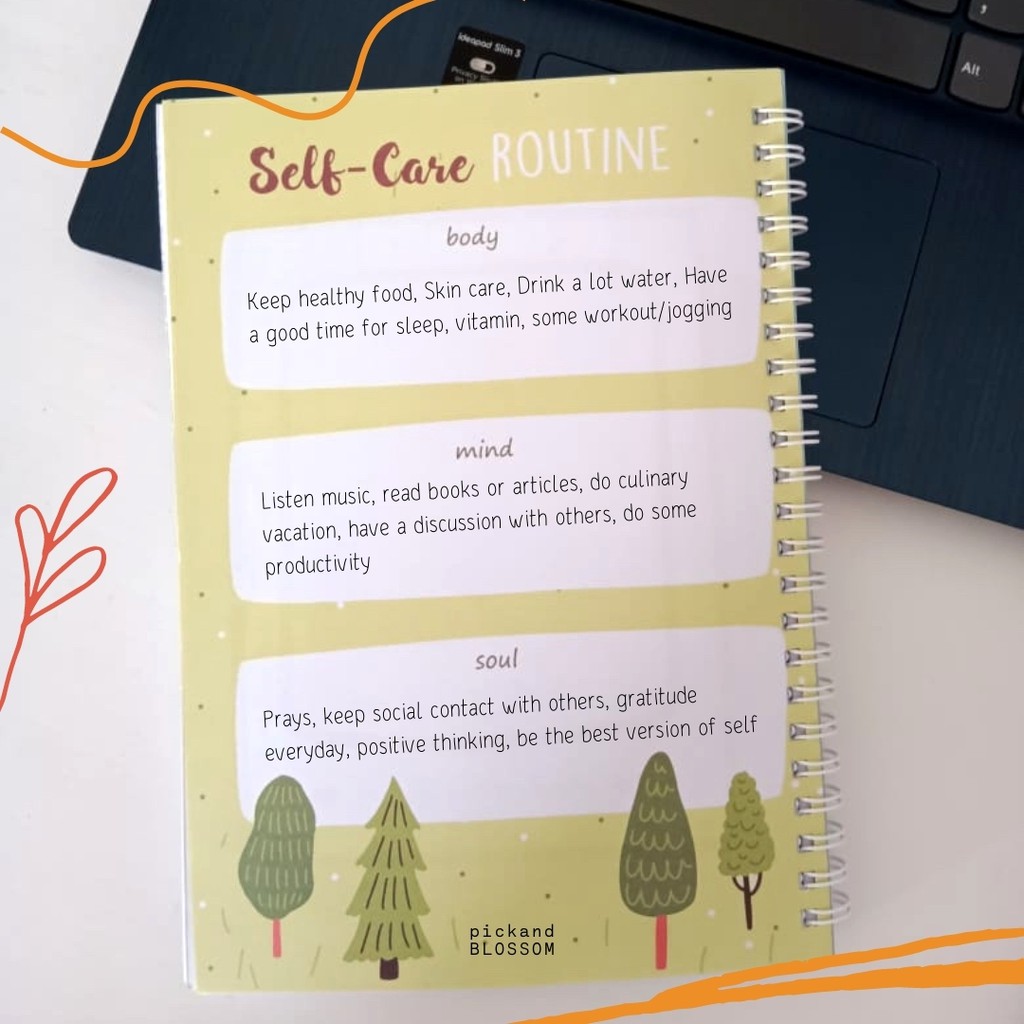 ideapad Slim 3
Alt
Self-Care ROUTINE
body
Keep healthy food, Skin care, Drink a lot water, Have
a good time for sleep, vitamin, some workout/jogging
mind
Listen music, read books or articles, do culinary
vacation, have a discussion with others, do some
productivity
soul
Prays, keep social contact with others, gratitude
everyday, positive thinking, be the best version of self
pickand
BLOSSOM